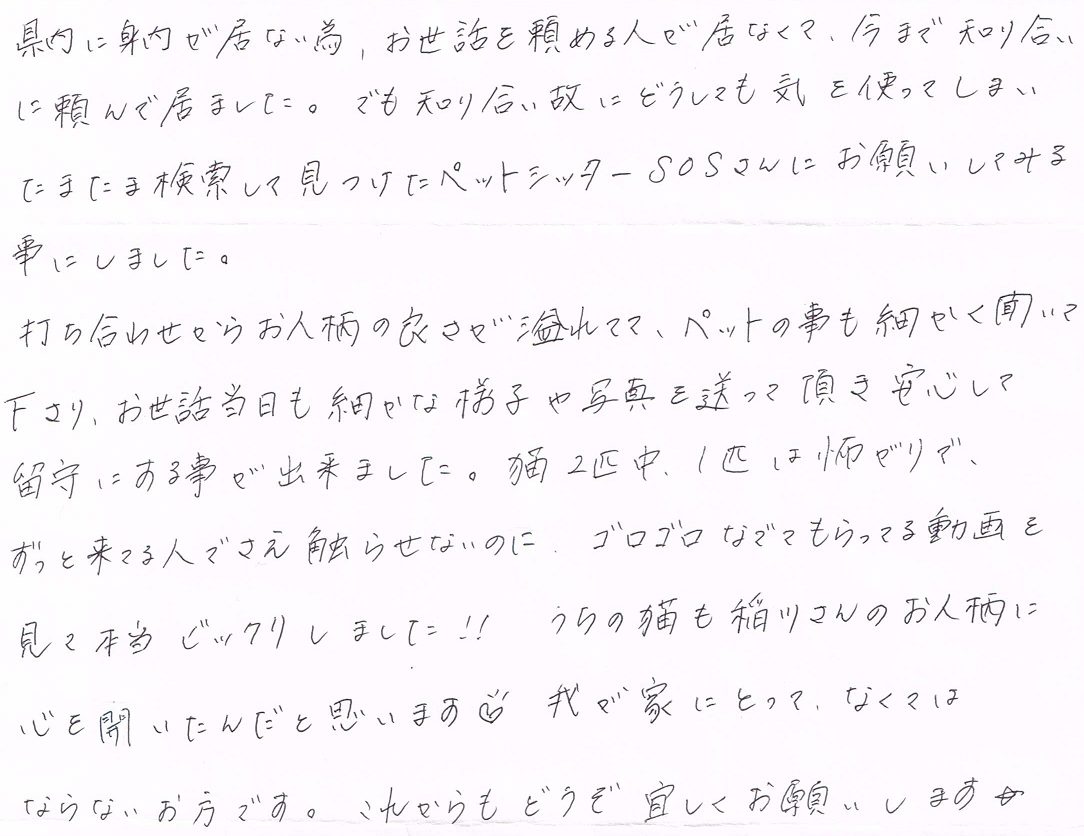 県内に身内が居ない為、お世話を頼める人が居なくて、今まで知り合い
に頼んで居ました。でも知り合い故にどうしても気を使ってしまい
たまたま検索して見つけたペットシッターSOSさんにお願いしてみる
事にしました。
打ち合わせからお人柄の良さが溢れてて、ペットの事も細かく聞いて
下さり、お世話当日も細かな様子や写真を送って頂き安心して
留守にする事が出来ました。猫2匹中、1匹は怖がりで、
ずっと来てる人でさえ触らせないのに、ゴロゴロなでてもらってる動画を
見て本当ビックリしました!! うちの猫も稲川さんのお人柄に
心を開いたんだと思います 我が家にとって、なくては
ならないお方です。これからもどうぞ宜しくお願いします